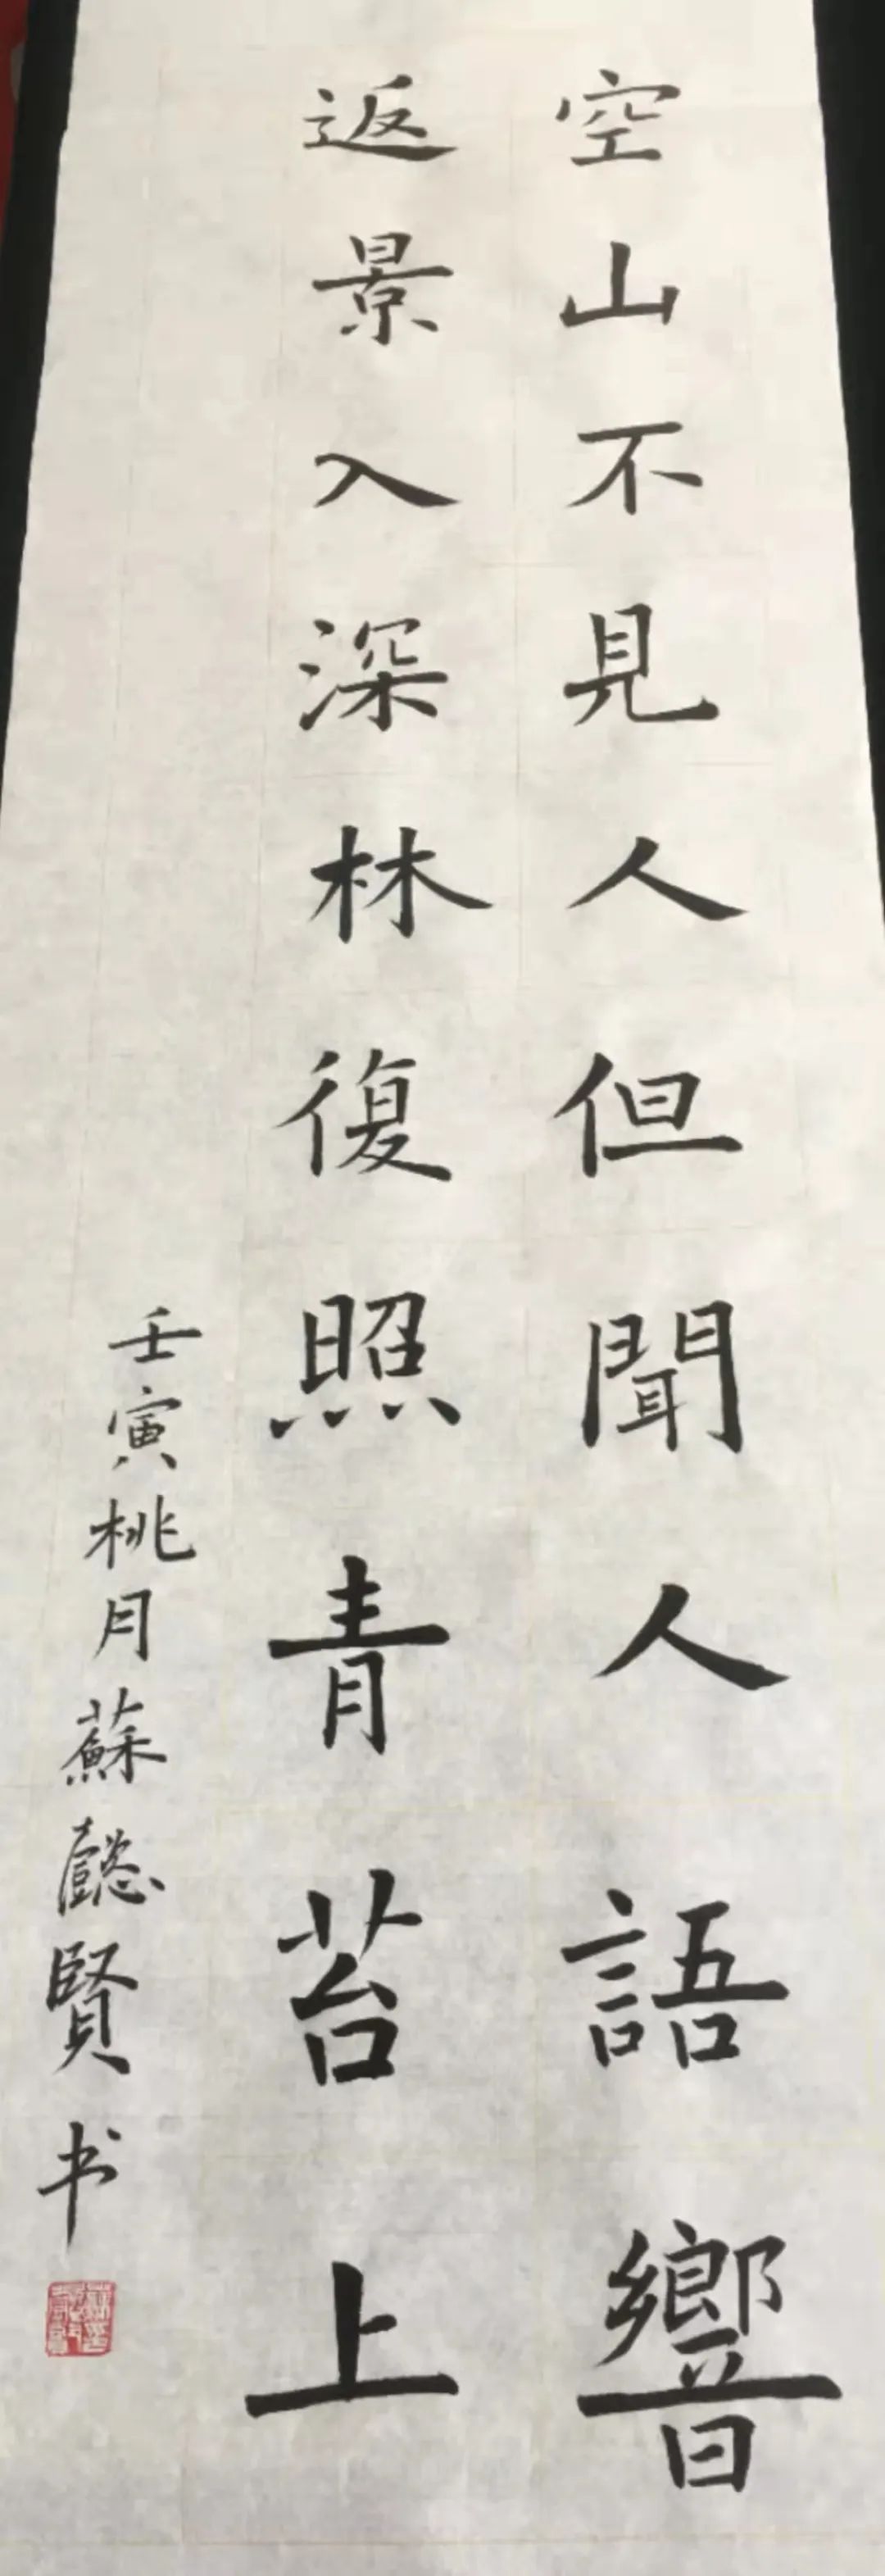 空山不見人但聞人語響
返景入深林復照青苔上
壬寅桃月蘇懿賢书